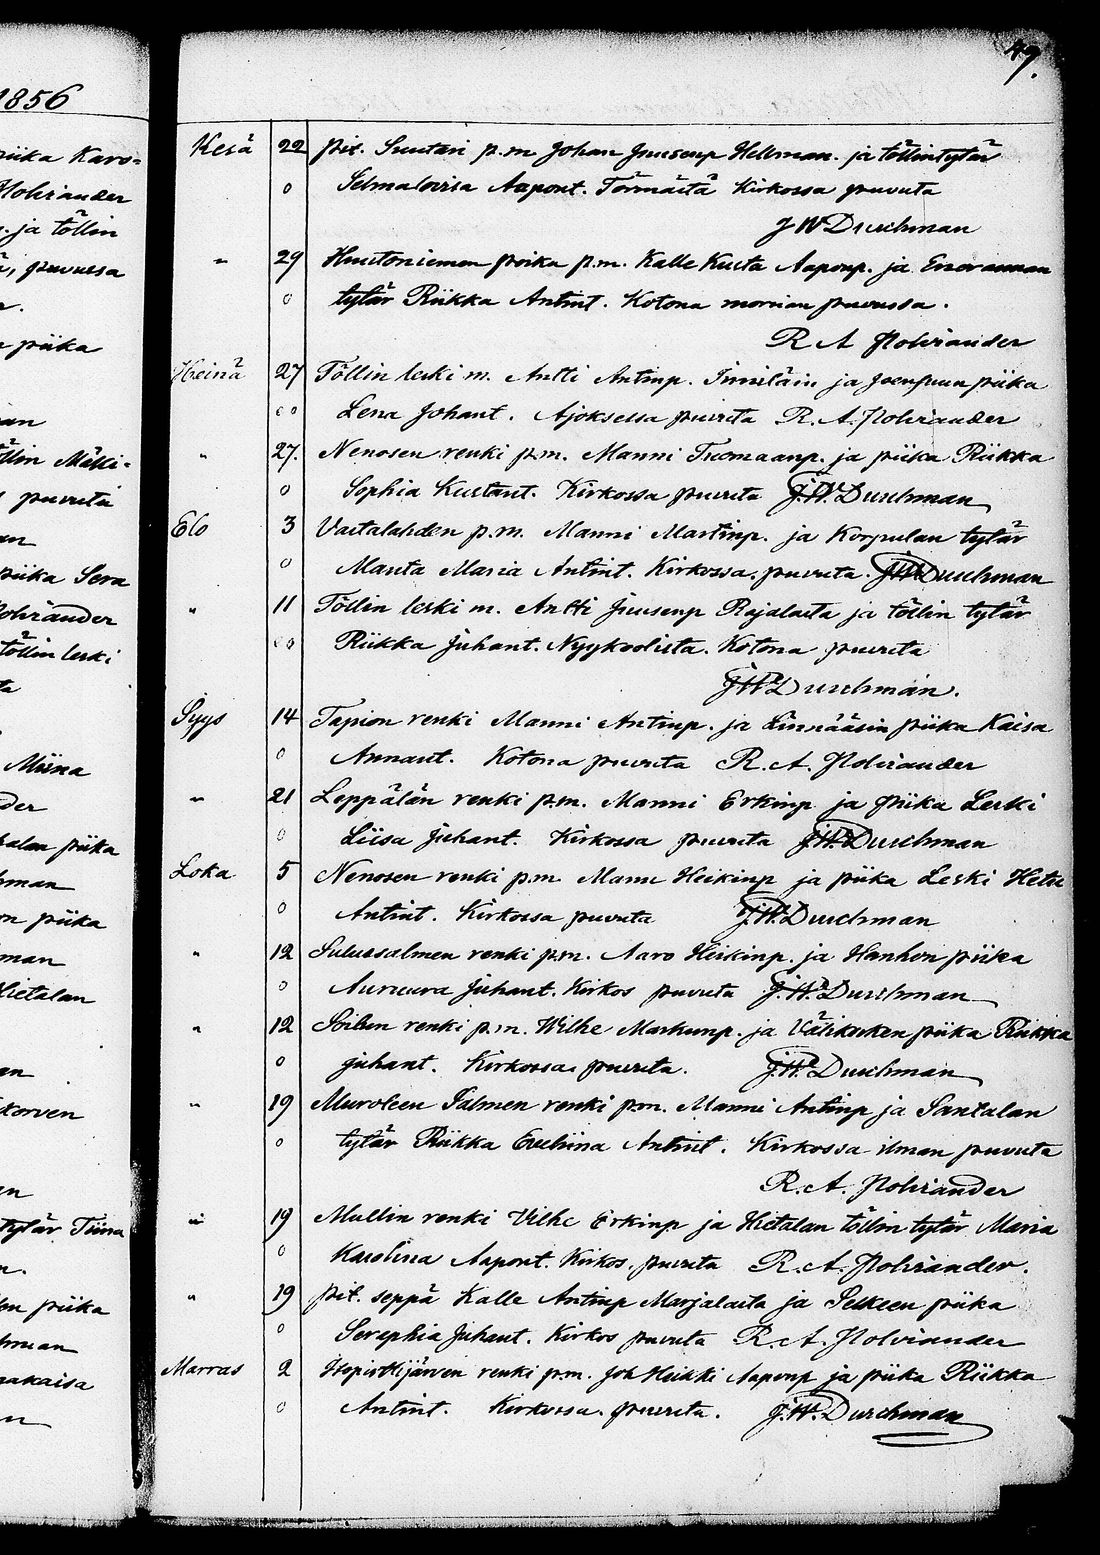 1856
49.
piika Karo=
Holviander
. ja töllin
, puvussa
piika
töllin Mäki=
puvuta
piika Sera
Holviander
töllin leski
Miina
piika
piika
Hietalan
korven
tytär Tiina
piika
Kesä 22 pit. Suutari p.m Johan Juusenp Hellman. ja töllintytär
0 Selmalovisa Aapont. Törmästä Kirkossa puvuta
J W Durchman
" 29 poika p.m. Kalle Kusta Aaponp. ja
0 tytär Riikka Antint. Kotona morsian puvussa.
R A Holviander
Heinä 27 Töllin leski m. Antti Antinp. ja piika
00 Lena Johant. Ajoksessa puvuta R. A. Holviander
" 27. Nenosen renki p.m. Manni Tuomaanp. ja piika Riikka
0 Sophia Kustant. Kirkossa puvuta J. W. Durchman
Elo 3 Vastalahden p.m. Manni Martinp. ja Korpulan tytär
0 Manta Maria Antint. Kirkossa. puvuta. J W Durchman
" 11 Töllin leski m. Antti Juusenp Rajalasta ja töllin tytär
00 Riikka Juhant. Kotona puvuta
J W Durchman.
Syys 14 Tapion renki Manni Antinp. ja piika Kaisa
0 Annant. Kotona puvuta R. A. Holviander
" 21 Leppälän renki p.m. Manni Erkinp ja piika Leski
0 Liisa Juhant. Kirkossa puvuta J W Durchman
Loka 5 Nenosen renki p.m. Manni Heikinp ja piika Leski Heta
0 Antint. Kirkossa puvuta J. W. Durchman
" 12 renki p.m. Aaro Heikinp. ja Hanhon piika
0 Auruura Juhant. Kirkos puvuta J. W. Durchman
" 12 Soilun renki p.m. Wilhe Markunp. ja Välikorken piika Riikka
0 Juhant. Kirkossa. puvuta. J. W. Durchman
" 19 Muroleen Salmen renki p.m. Manni Antinp ja Santalan
0 tytär Riikka Eveliina Antint. Kirkossa ilman puvuta
R. A. Holviander
" 19 Mullin renki Vilhe Erkinp ja Hietalan töllin tytär Maria
0 Karolina Aapont. Kirkos. puvuta R. A. Holviander.
" 19 pit. seppä Kalle Antinp Marjalasta ja Selkeen piika
0 Seraphia Juhant. Kirkos puvuta R. A. Holviander
Marras 2 renki p.m. Joh Heikki Aaponp ja piika Riikka
0 Antint. Kirkossa. puvuta. J. W. Durchman